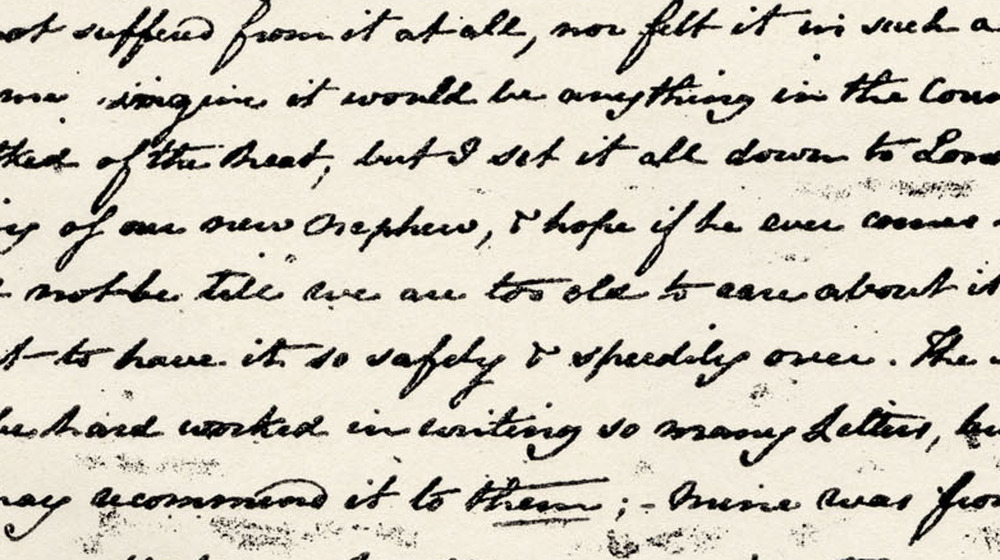 not suffered from it at all, nor felt it in such a
me imagine it would be anything in the Coun
of the Heat, but I set it all down to Lond
of our new Nephew, & hope if he ever comes
not be till we are too old to care about it
to have it so safely & speedily over. The
be hard worked in writing so many Letters, bu
may recommend it to them; - Mine was from